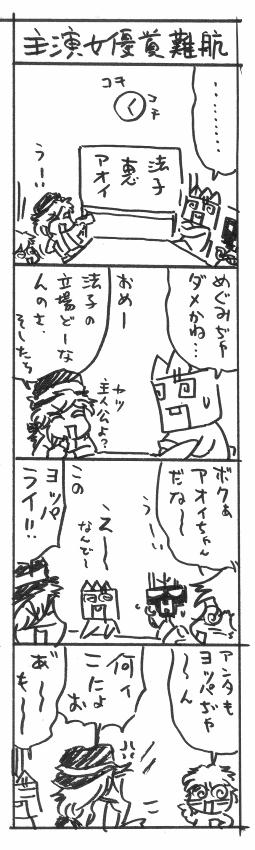 主演女優賞難航
………
コチ
コチ
法子
恵
アオイ
うー…
めぐみぢゃ
ダメかね…
おめー
法子の
立場どーな
んのさ、
そしたら
ヤツ
主人公よ？
ボクぁ
アオイちゃん
だな〜
うー…
え〜
なんで〜
この
ヨッパ
ライ!!
アンタも
ヨッパぢゃ
〜ん
何ィ
こによ
お
あ゛〜
も〜